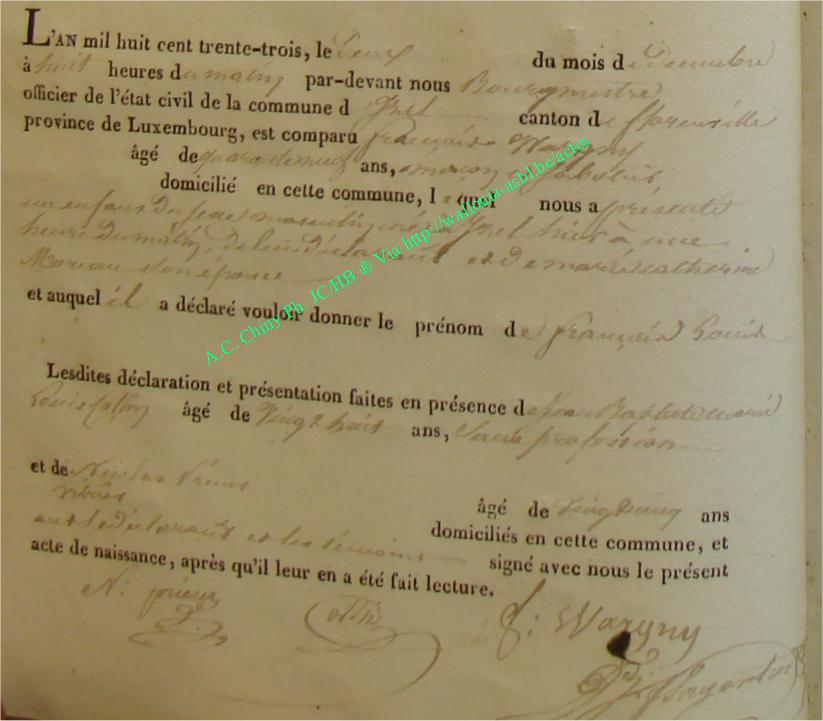 L'AN mil huit cent trente-trois, le Deux du mois de Decembre
à huit heures du matin par-devant nous Bourgmestre
officier de l'état civil de la commune d'Izel canton de florenville
province de Luxembourg, est comparu françois Wargny
âgé de quarante neuf ans,
domicilié en cette commune, lequel nous a présenté
un enfant du sexe masculin né à Izel hier à une
heure du matin, de lui déclarant et de marie catherine
Moreau son épouse
et auquel il a déclaré vouloir donner le prénom de françois Louis
Lesdites déclaration et présentation faites en présence de Jean Baptiste marie
Louis âgé de Vingt huit ans, Sans profession
et de Nicolas
âgé de vingt ans
domiciliés en cette commune, et
ont le déclarant et les témoins signé avec nous le présent
acte de naissance, après qu'il leur en a été fait lecture.
N: prieur
f: Wargny
A.C. Chiny Ph. JC/HB ® Via http://wallonia-asbl.be/actes